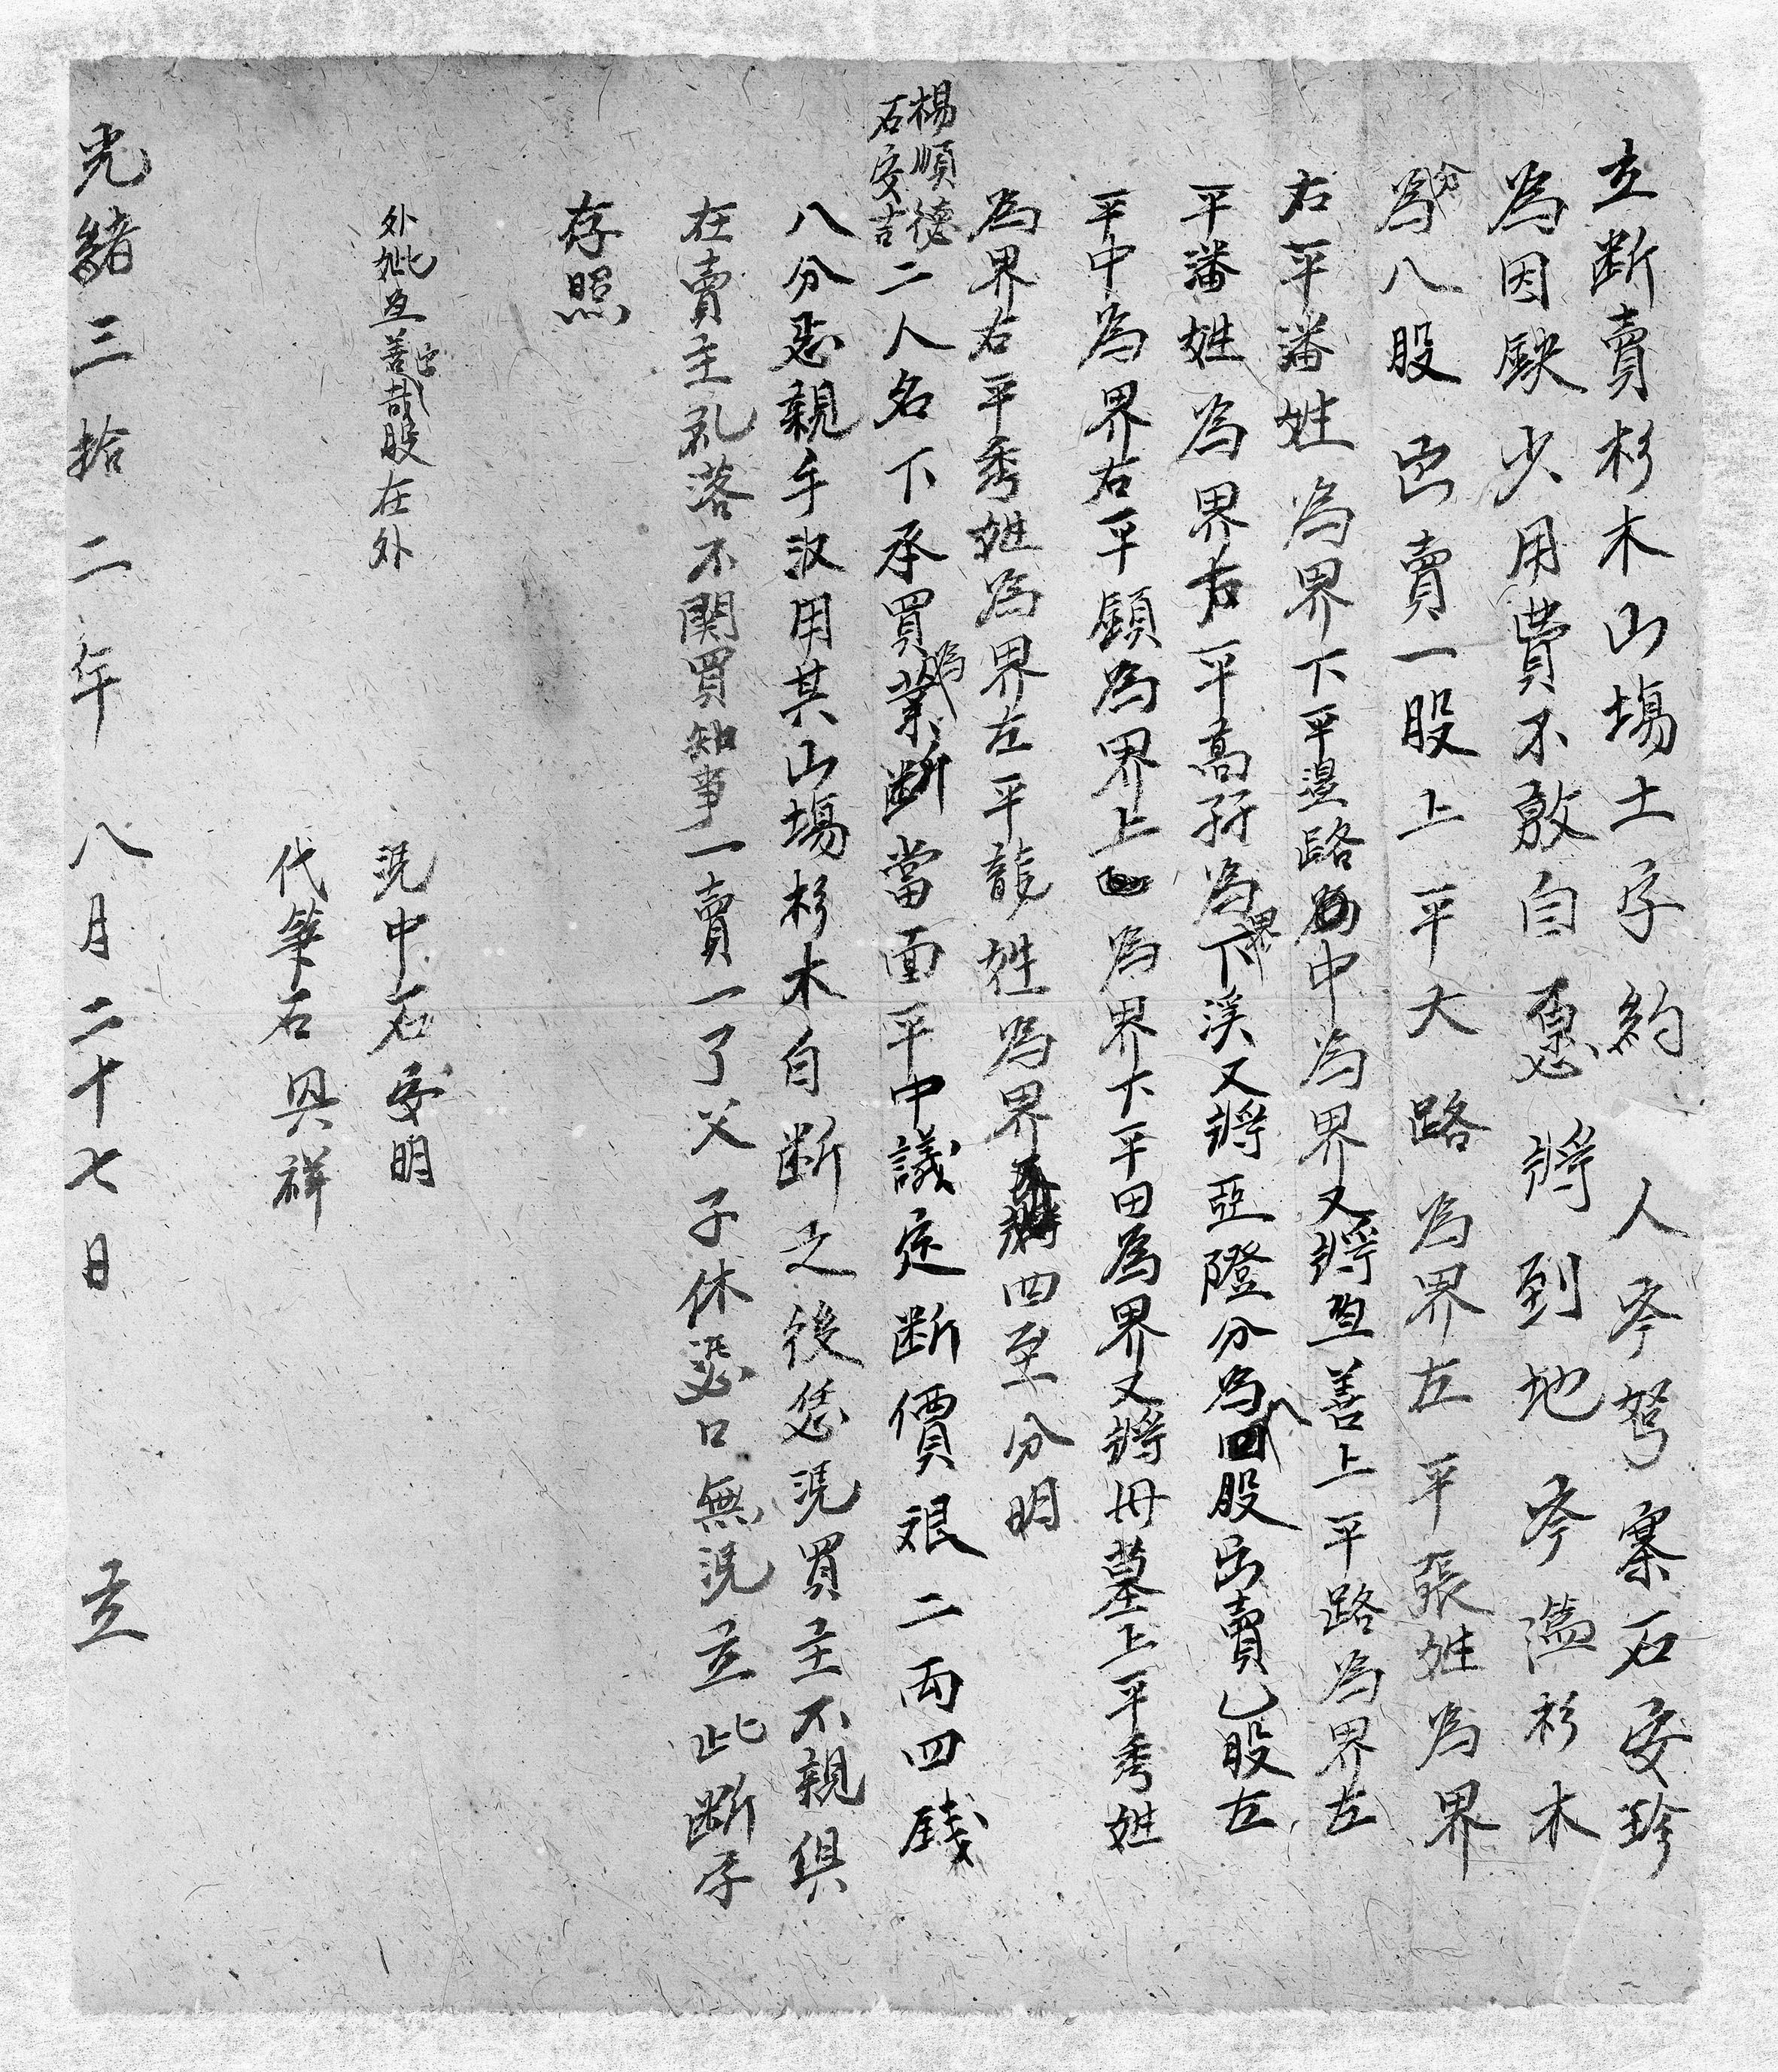 立断賣杉木山塲土字約人岑驽寨石安珍
為因缺少用費不敷自愿將到地岑溘杉木
分為八股出賣一股上平大路為界左平張姓為界
右平潘姓為界下平邉路為中為界又將亚善上平路為界左
平潘姓為界右平高矸為界下溪又將亞隥分為八股出賣乚股左
平中為界右平顧為界上為界下平田為界又將冊墓上平秀姓
為界右平秀姓為界左平龍姓為界四至分明
楊順德
石安吉
二人名下承買為業断當面平中議定断價艮二両四錢
八分忍親手汷用其山塲杉木自断之後恁凴買主不親俱
在賣主礼落不関買知事一賣一了父子休恐口無凴立此断字
存照
外批亚善出哉股在外
凴中石安明
代筆石興祥
光緒三拾二年八月二十七日立